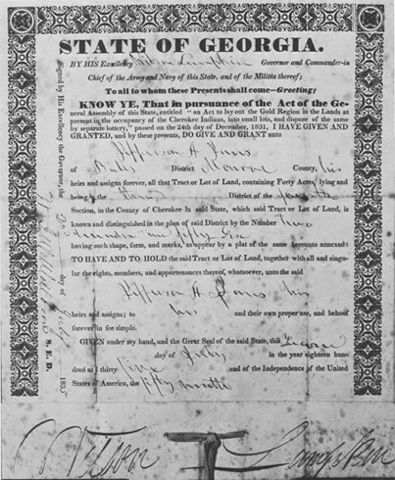 STATE OF GEORGIA.
BY HIS Excellency Wilson Lumpkin Governor and Commander-in
Chief of the Army and Navy of this State, and of the Militia thereof;
To all to whom these Presents shall come—Greeting;
KNOW YE, That in pursuance of the Act of the Ge-
neral Assembly of this State, entitled "an Act to lay out the Gold Region in the Lands at
present in the occupancy of the Cherokee Indians, into small lots, and dispose of the same
by separate lottery," passed on the 24th day of December, 1831, I HAVE GIVEN AND
GRANTED, and by these presents, DO GIVE AND GRANT unto
Jefferson A. Jones
of District Monroe County, his
heirs and assigns forever, all that Tract or Lot of Land, containing Forty Acres, lying and
being in the Third District of the fourth
Section, in the County of Cherokee in said State, which said Tract or Lot of Land, is
known and distinguished in the plan of said District by the Number Two
hundred
having such shape, form, and marks, as appear by a plat of the same hereunto annexed:
TO HAVE AND TO HOLD the said Tract or Lot of Land, together with all and singu-
lar the rights, members, and appurtenances thereof, whatsoever, unto the said
Jefferson A. Jones his
heirs and assigns; to his and their own proper use, and behoof
forever in fee simple.
GIVEN under my hand, and the Great Seal of the said State, this Second
day of July in the year eighteen hun-
dred and thirty five and of the Independence of the United
States of America, the fifty ninth
Wilson Lumpkin
Signed by His Excellency the Governor, the
day of July 1835
S. E. D.